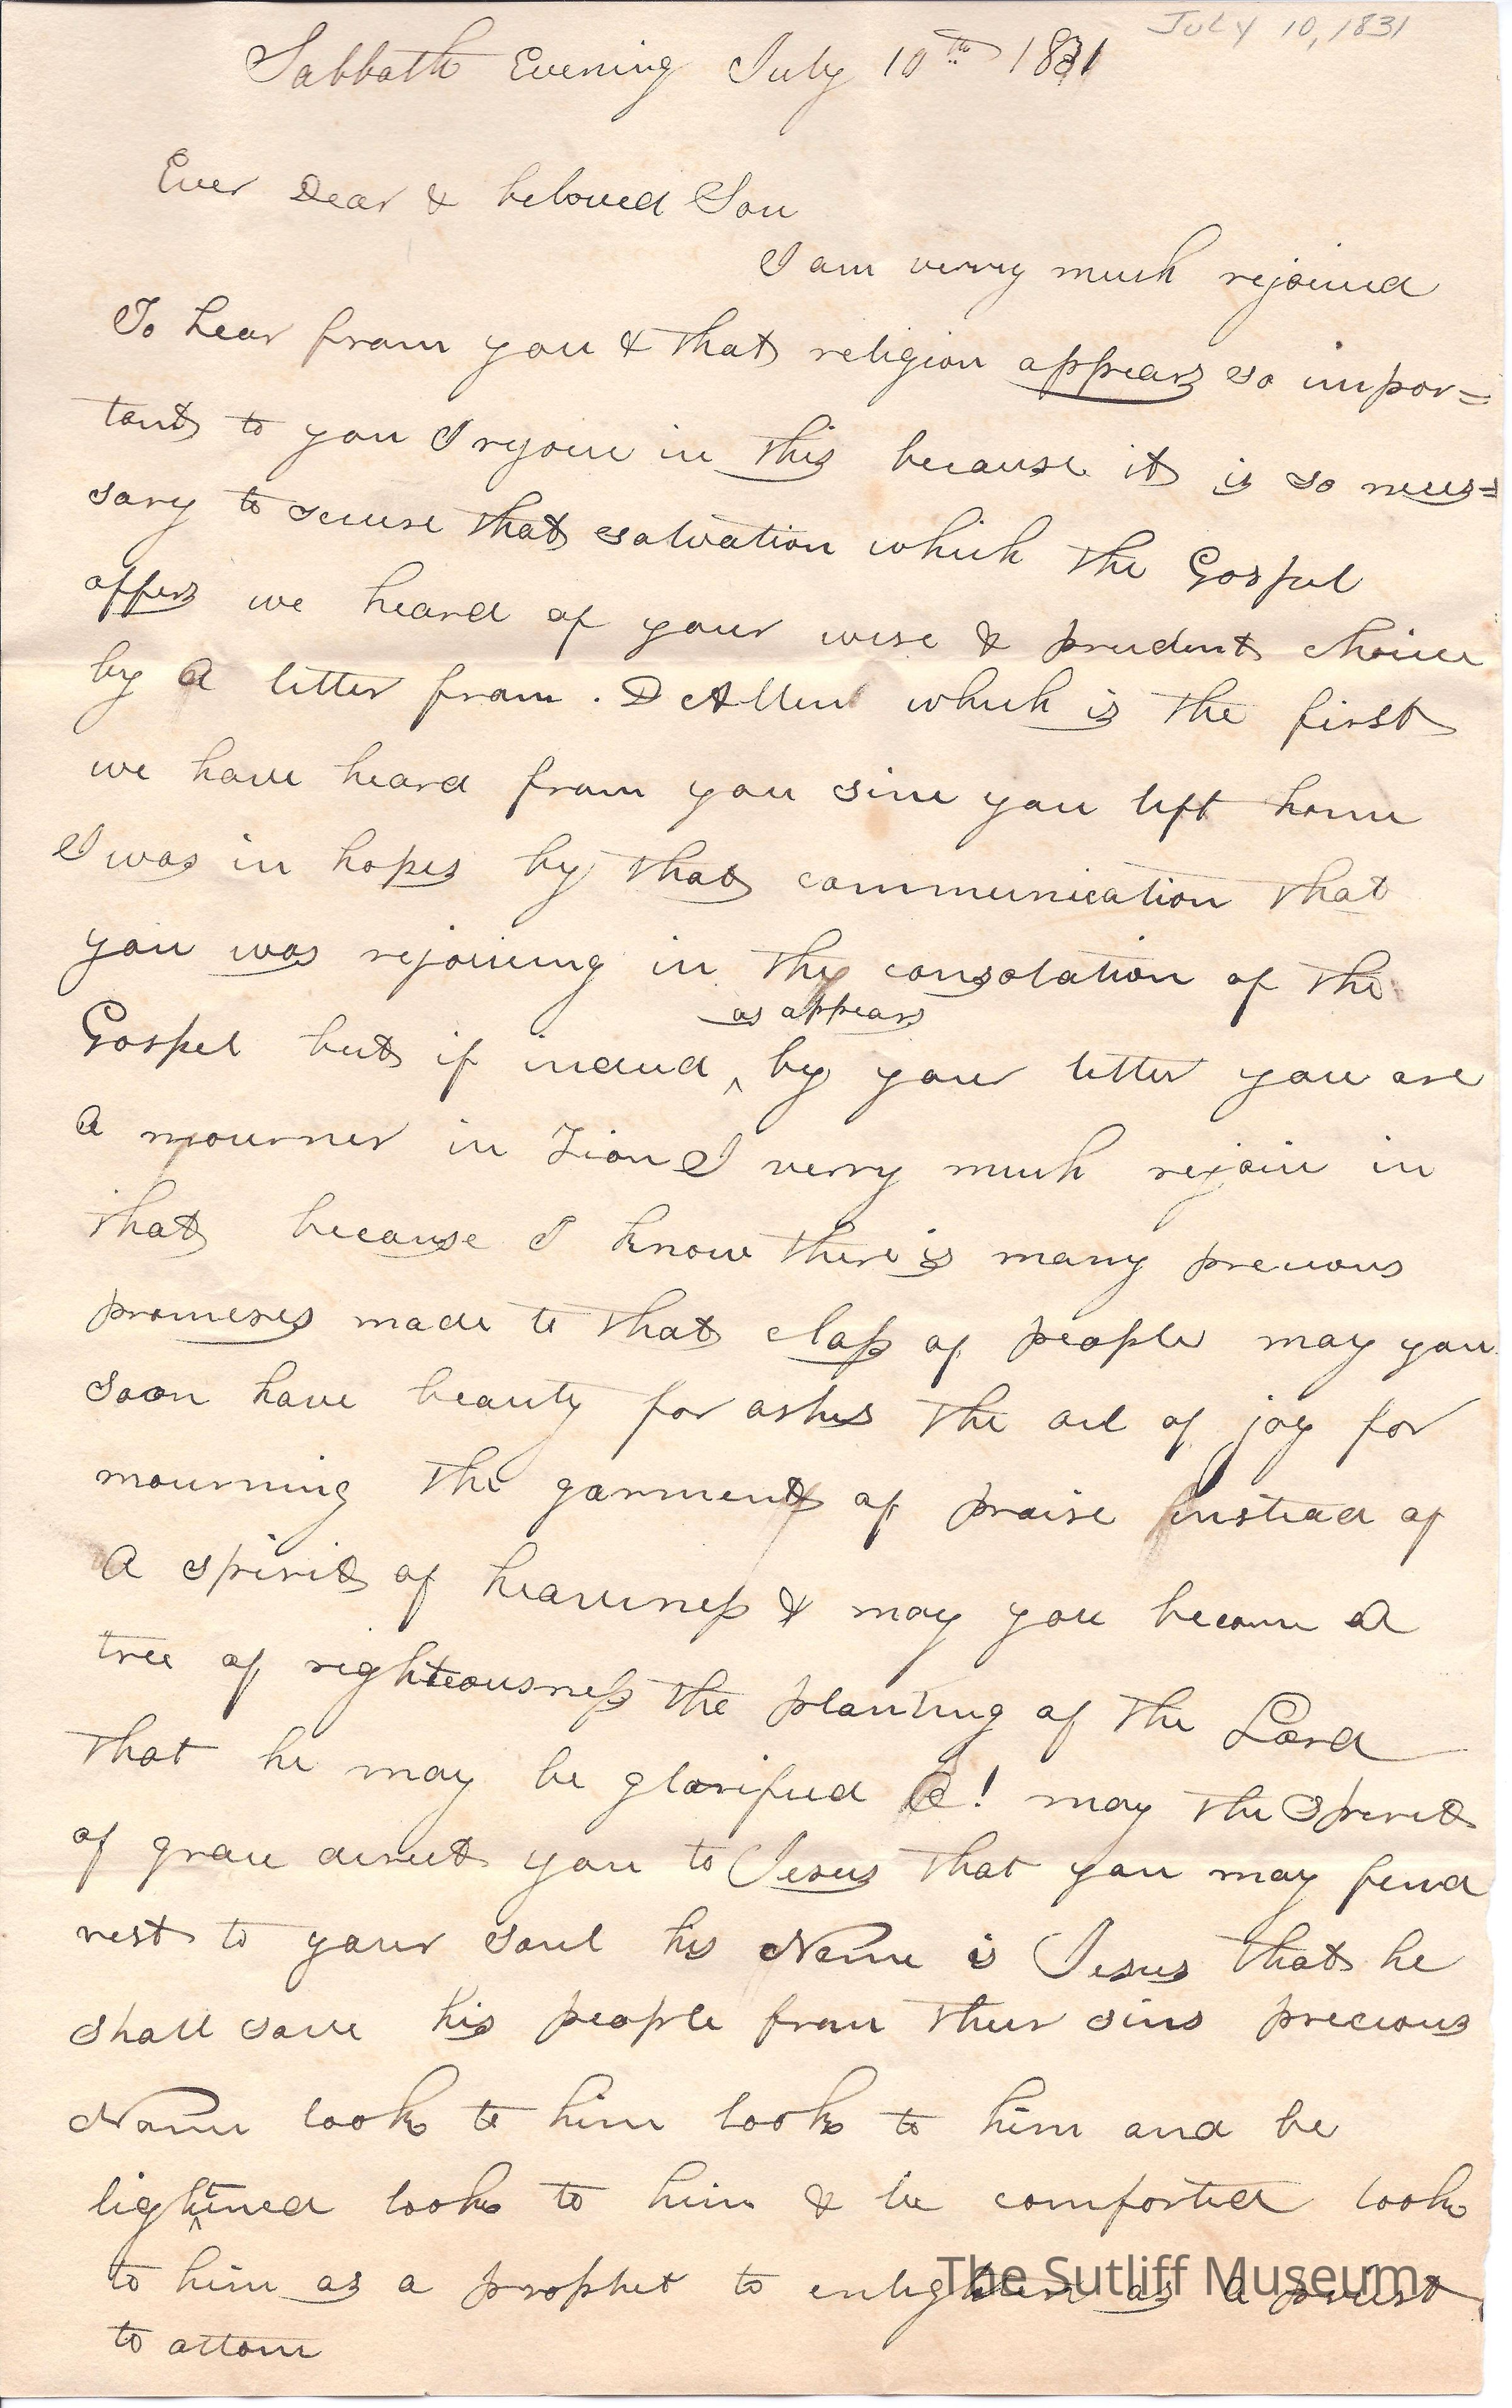 July 10, 1831
Sabbath Evening July 10th 1831
Ever Dear & beloved Son
I am verry much rejoiced
To hear from you & that religion appears so impor=
tant to you I rejoice in this because it is so neces=
sary to secure that salvation which the Gospel
offers we heard of your wise & prudent choice
by a letter from . D Allen which is the first
we have heard from you since you left home
I was in hopes by that communication that
you was rejoicing in the consolation of the
as appears
Gospel but if indeed ^ by your letter you are
a mourner in Zion I verry much rejoice in
that because I know there is many precious
promeses made to that class of people may you
soon have beauty for ashes the oil of joy for
mourning the garment of praise instead of
a spirit of heaviness & may you become a
tree of righteousness the planting of the Lord
that he may be glorified O! may the Spirit
of grace direct you to Jesus that you may find
rest to your soul his Name is Jesus that he
shall save his people from their sins precious
Name look to him look to him and be
lightened look to him & be comforted look
to him as a prophet to enlighten as a priest
to attone
The Sutliff Museum